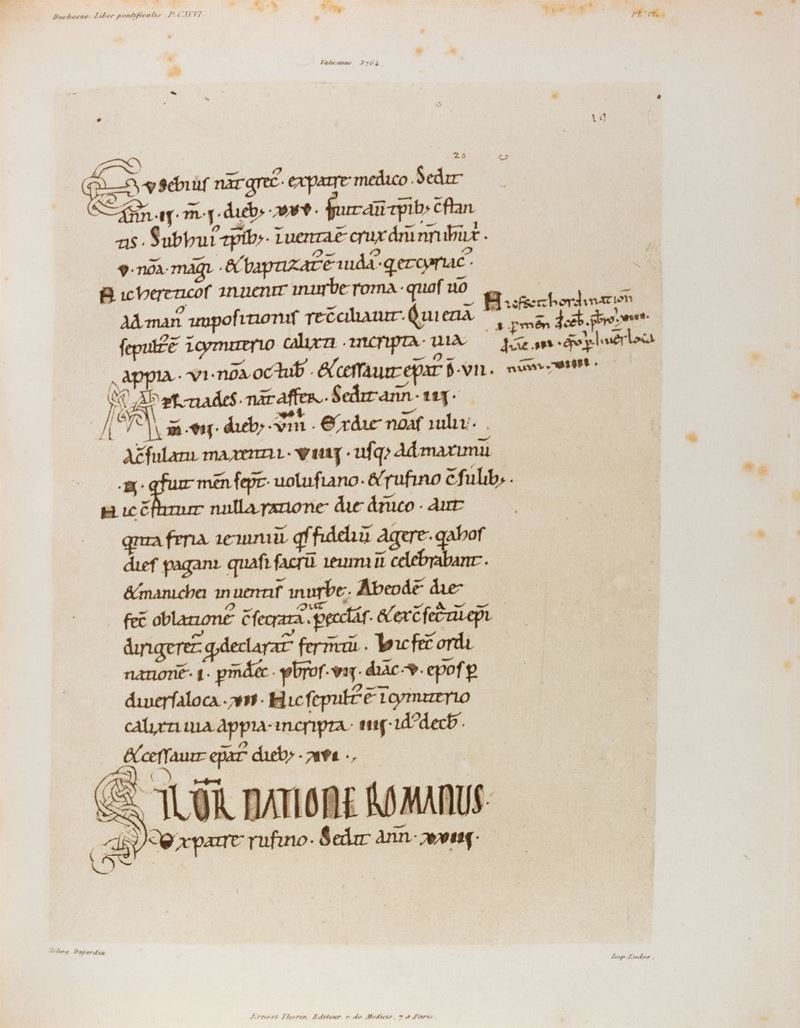 Duchesne. Liber pontificalis. P. CXCVI.
Vaticanus 3764.
19
20
Eusebius nat̄ grec̉. ex patre medico. Sedit
ann̄. ii. m̄. i. dieb; xxv. fuit aū tp̄ib; c̄stan
tis. Sub hui᾽ tp̄ib;. īuenta ē crux dn̄i nr̄i
v. noā. magi. & baptizat᾽ ē iuda᾽. q et cyriac᾽.
Hic hereticos inuenit in urbe roma. quos uō
Ad man᾽ impositionis rec̄ciliauit. Qui etiā
sepult᾽ ē ī cymiterio calixti. in cripta. uia
Appia. vi. noā octub̄. & cessauit ep̄at᾽ d̄. vii.
Hic fecit hordination
i. p men̄ deceb̄. pb̄ro
diāc. ep̄os p diuersa loca
num̄.
Meltiades. nat̄ affer. Sedit ann̄. iii.
m̄. vii. dieb; viii. Ex die noās iulii.
Ac̄sulatu maxentii. viiii. usq; Ad maximū
.ii. q fuit men̄ sept̄. uolusiano. & rufino c̄sulib;.
Hic c̄stituit nulla ratione die dn̄ico. Aut
qnta feria ieiuniū qs fideliū Agere. q a hos
dies pagani quasi sacrū ieiuniū celebrabant.
& manichei inuentis in urbe. Ab eodē die
fec̄ oblatione᾽ c̄secrata᾽. p eccl̄as. & ex c̄sec̄tū ep̄i
dirigeret᾽. q declarat᾽ ferm̄tū. Hic fec̄ ordi
nationē. i. p m̄ dec̄. pb̄ros. vii. diāc. v. ep̄os p
diuersa loca. xii. Hic sepult᾽ ē ī cymiterio
calixti uia Appia. in cripta. iiii. id᾽ decb̄.
& cessauit ep̄at᾽ dieb; xvi.,
SILUR NATIONE ROMANUS.
Ex patre rufino. Sedit ann̄. xxiii.
Hélioq. Dujardin
Imp. Eudes.
Ernest Thorin Editeur, r. de Medicis, 7 à Paris.